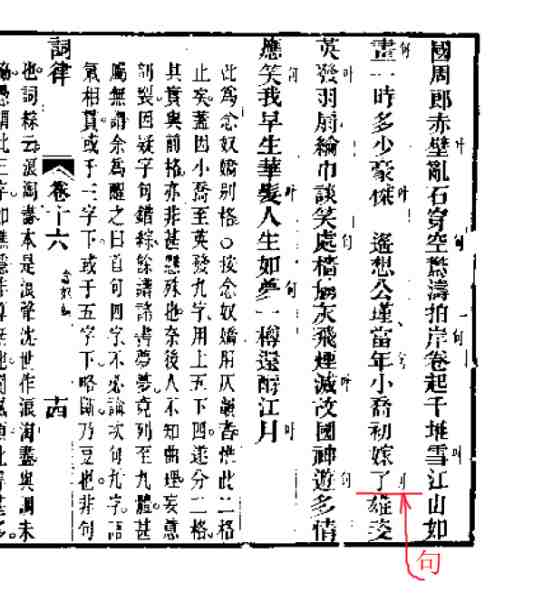 國周郎赤壁亂石穿空驚濤拍岸卷起千堆雪江山如
畫一時多少豪傑　遙想公瑾當年小喬初嫁了雄姿
英發羽扇綸巾談笑處檣艣灰飛煙滅故國神遊多情
應笑我早生華髮人生如夢一樽還酹江月
此爲念奴嬌別格○按念奴嬌用仄韻者惟此二格
止矣蓋因小喬至英發九字用上五下四遂分二格
其實與前格亦非甚懸殊也奈後人不知曲理妄意
剖裂因疑字句錯綜餘譜諸書夢夢竟列至九體甚
屬無謂余爲醒之曰首句四字不必論次句九字語
氣相貫或于三字下或于五字下略斷乃豆也非句
詞律
卷十六
念奴嬌
十四
也詞綜云浪淘盡本是浪聲沈世作浪淘盡與調未
句